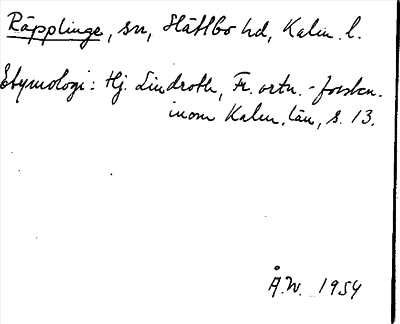 Räpplinge, sn, Slättbo hd, Kalm. l.
Etymologi: Hj. Lindroth, Fr. ortn.-forskn.
inom Kalm. län, s. 13.
Å.W. 1954